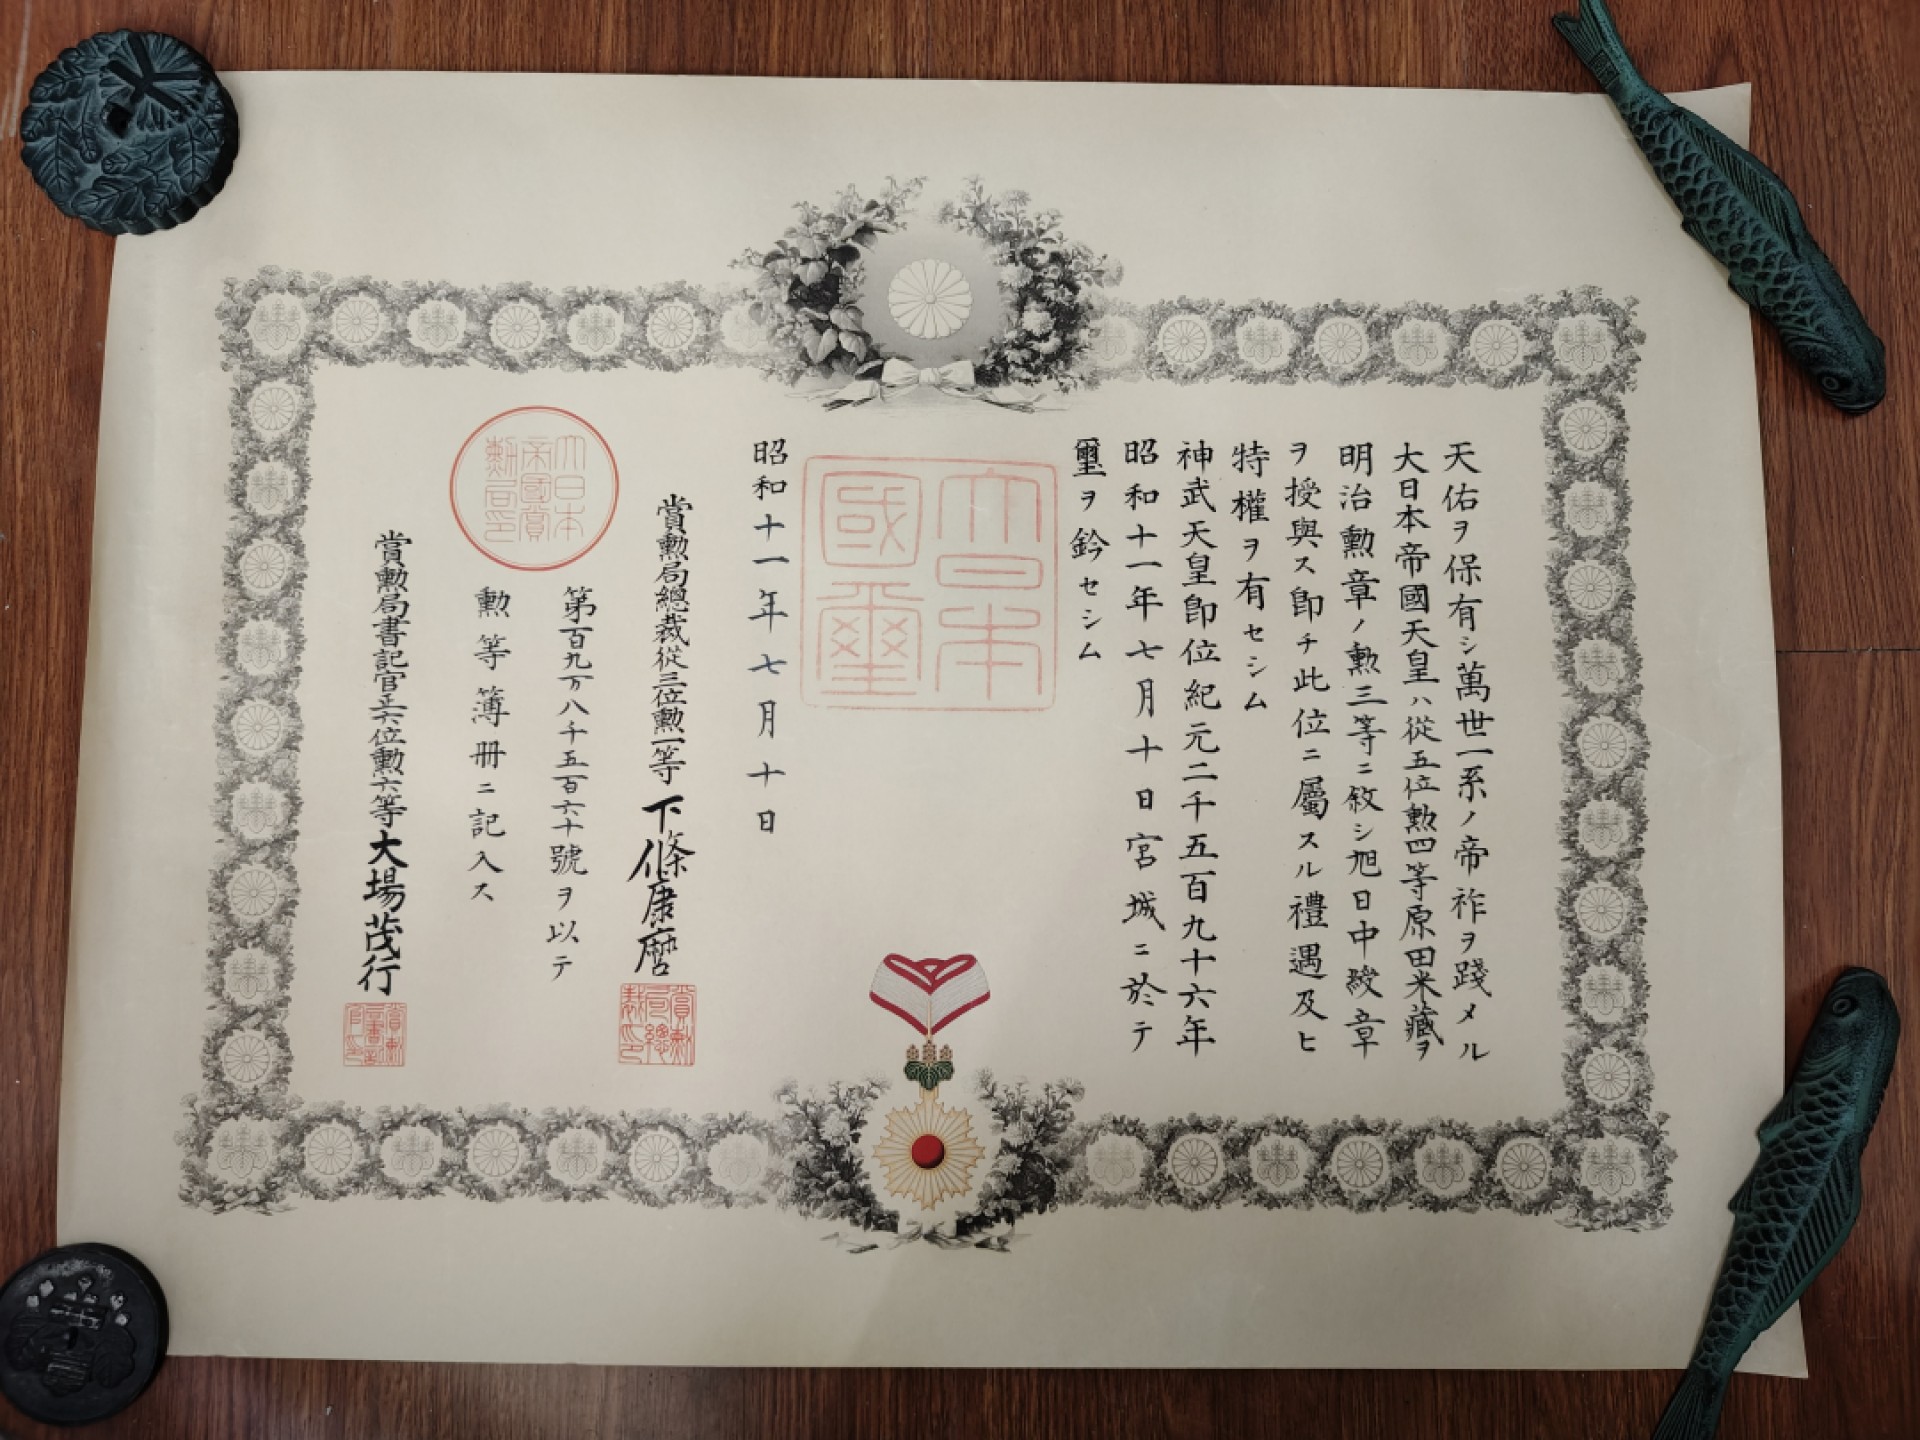 天佑ヲ保有シ萬世一系ノ帝祚ヲ踐メル
大日本帝國天皇ハ從五位勲四等原田米藏ヲ
明治勲章ノ勲三等ニ敘シ旭日中綬章
ヲ授與ス即チ此位ニ屬スル禮遇及ヒ
特權ヲ有セシム
神武天皇即位紀元二千五百九十六年
昭和十一年七月十日宮城ニ於テ
璽ヲ鈐セシム
大日本
國璽
昭和十一年七月十日
賞勲局總裁從三位勲一等下條康麿
賞勲局總裁印
第百九万八千五百六十號ヲ以テ
勲等簿冊ニ記入ス
大日本帝國賞勲局印
賞勲局書記官正六位勲六等大場茂行
賞勲局書記官印